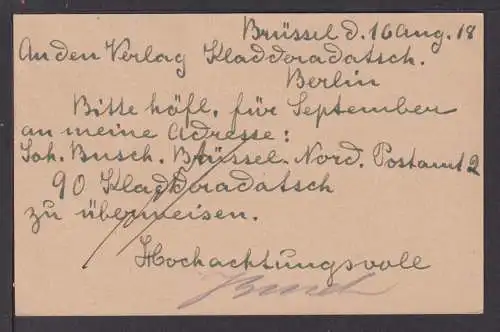 Brüssel d. 16 Aug. 18
An den Verlag Kladderadatsch.
Berlin
Bitte höfl. für September
an meine Adresse:
Joh. Busch. Brüssel. Nord. Postamt 2
90 Kladderadatsch
zu überweisen.
Hochachtungsvoll
Busch